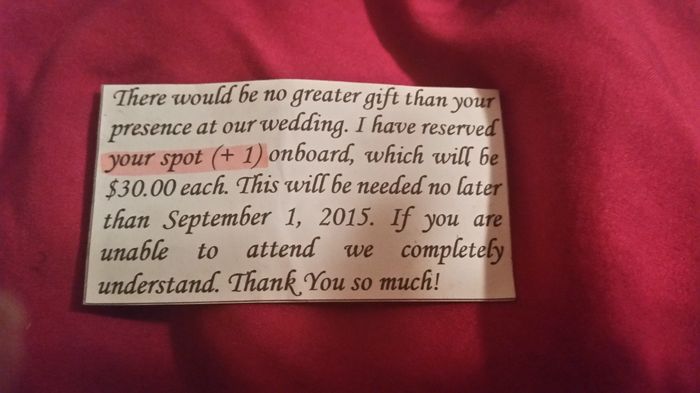 There would be no greater gift than your
presence at our wedding. I have reserved
your spot (+ 1) onboard, which will be
$30.00 each. This will be needed no later
than September 1, 2015. If you are
unable to attend we completely
understand. Thank You so much!